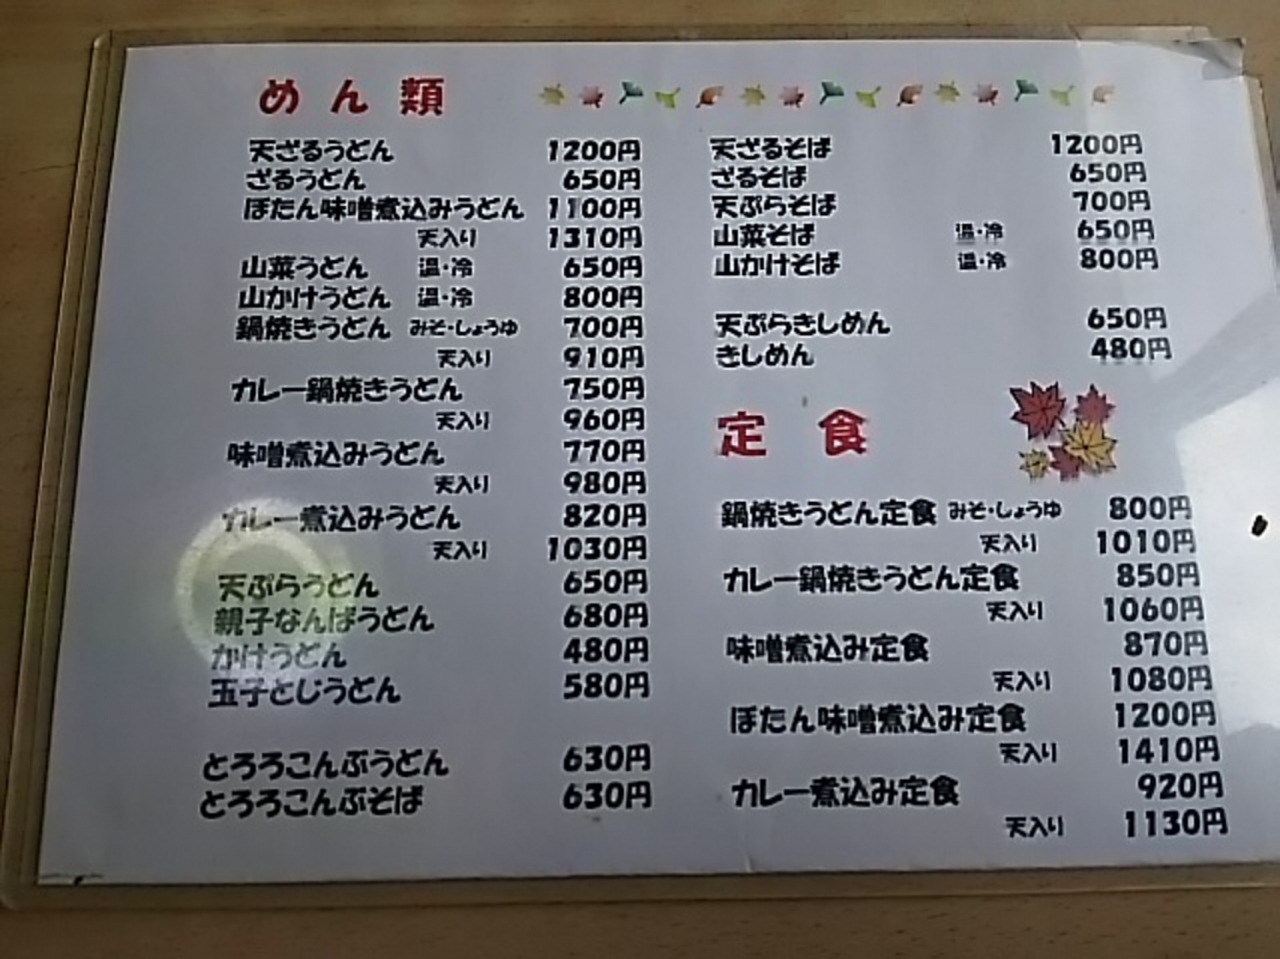 めん類
天ざるうどん 1200円
ざるうどん 650円
ぼたん味噌煮込みうどん 1100円
天入り 1310円
山菜うどん 温・冷 650円
山かけうどん 温・冷 800円
鍋焼きうどん みそ・しょうゆ 700円
天入り 910円
カレー鍋焼きうどん 750円
天入り 960円
味噌煮込みうどん 770円
天入り 980円
カレー煮込みうどん 820円
天入り 1030円
天ぷらうどん 650円
親子なんばうどん 680円
かけうどん 480円
玉子とじうどん 580円
とろろこんぶうどん 630円
とろろこんぶそば 630円
天ざるそば 1200円
ざるそば 650円
天ぷらそば 700円
山菜そば 温・冷 650円
山かけそば 温・冷 800円
天ぷらきしめん 650円
きしめん 480円
定食
鍋焼きうどん定食 みそ・しょうゆ 800円
天入り 1010円
カレー鍋焼きうどん定食 850円
天入り 1060円
味噌煮込み定食 870円
天入り 1080円
ぼたん味噌煮込み定食 1200円
天入り 1410円
カレー煮込み定食 920円
天入り 1130円